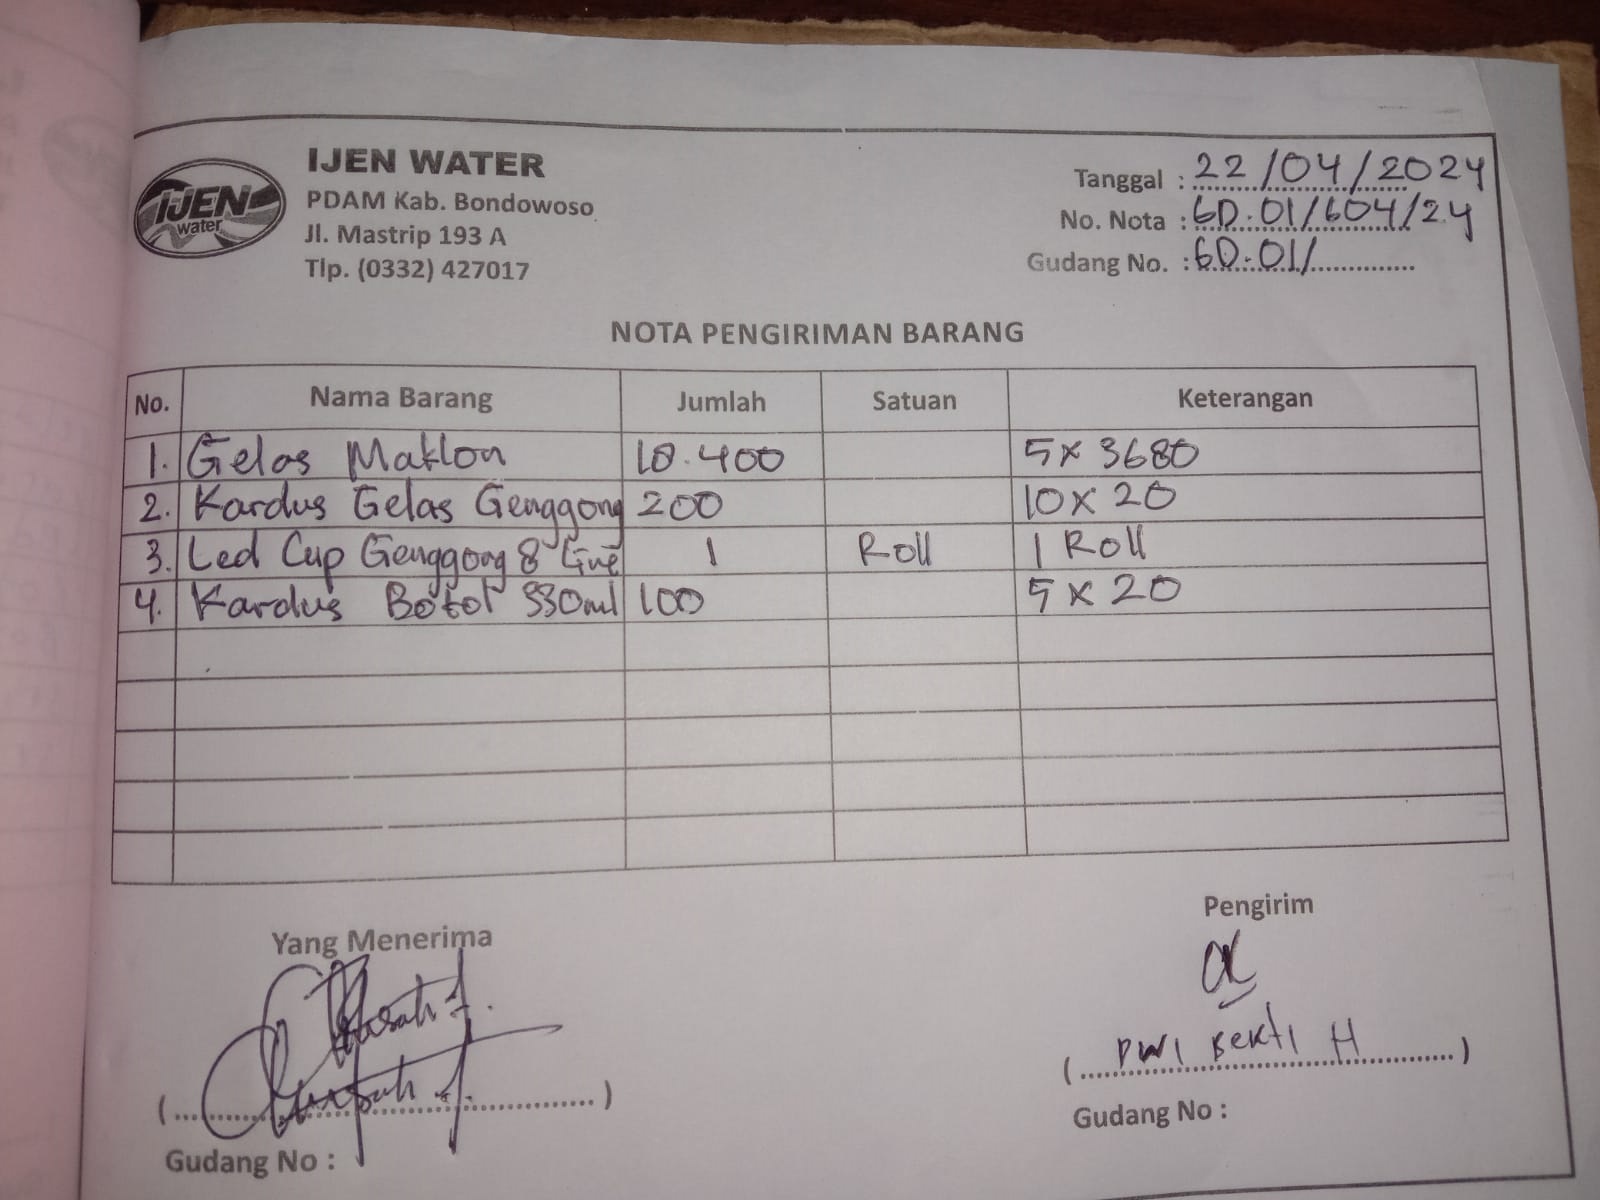 IJEN WATER
PDAM Kab. Bondowoso
Jl. Mastrip 193 A
Tlp. (0332) 427017
IJEN
water
Tanggal : 22/04/2024
No. Nota : GD.01/604/24
Gudang No. : GD.01/
NOTA PENGIRIMAN BARANG
No. Nama Barang Jumlah Satuan Keterangan
1. Gelas Maklon 18.400 5 x 3680
2. Kardus Gelas Genggong 200 10 x 20
3. Led Cup Genggong 8 Line 1 Roll 1 Roll
4. Kardus Botol 330ml 100 5 x 20
Yang Menerima
Pengirim
( )
( DWI BEKTI H )
Gudang No :
Gudang No :